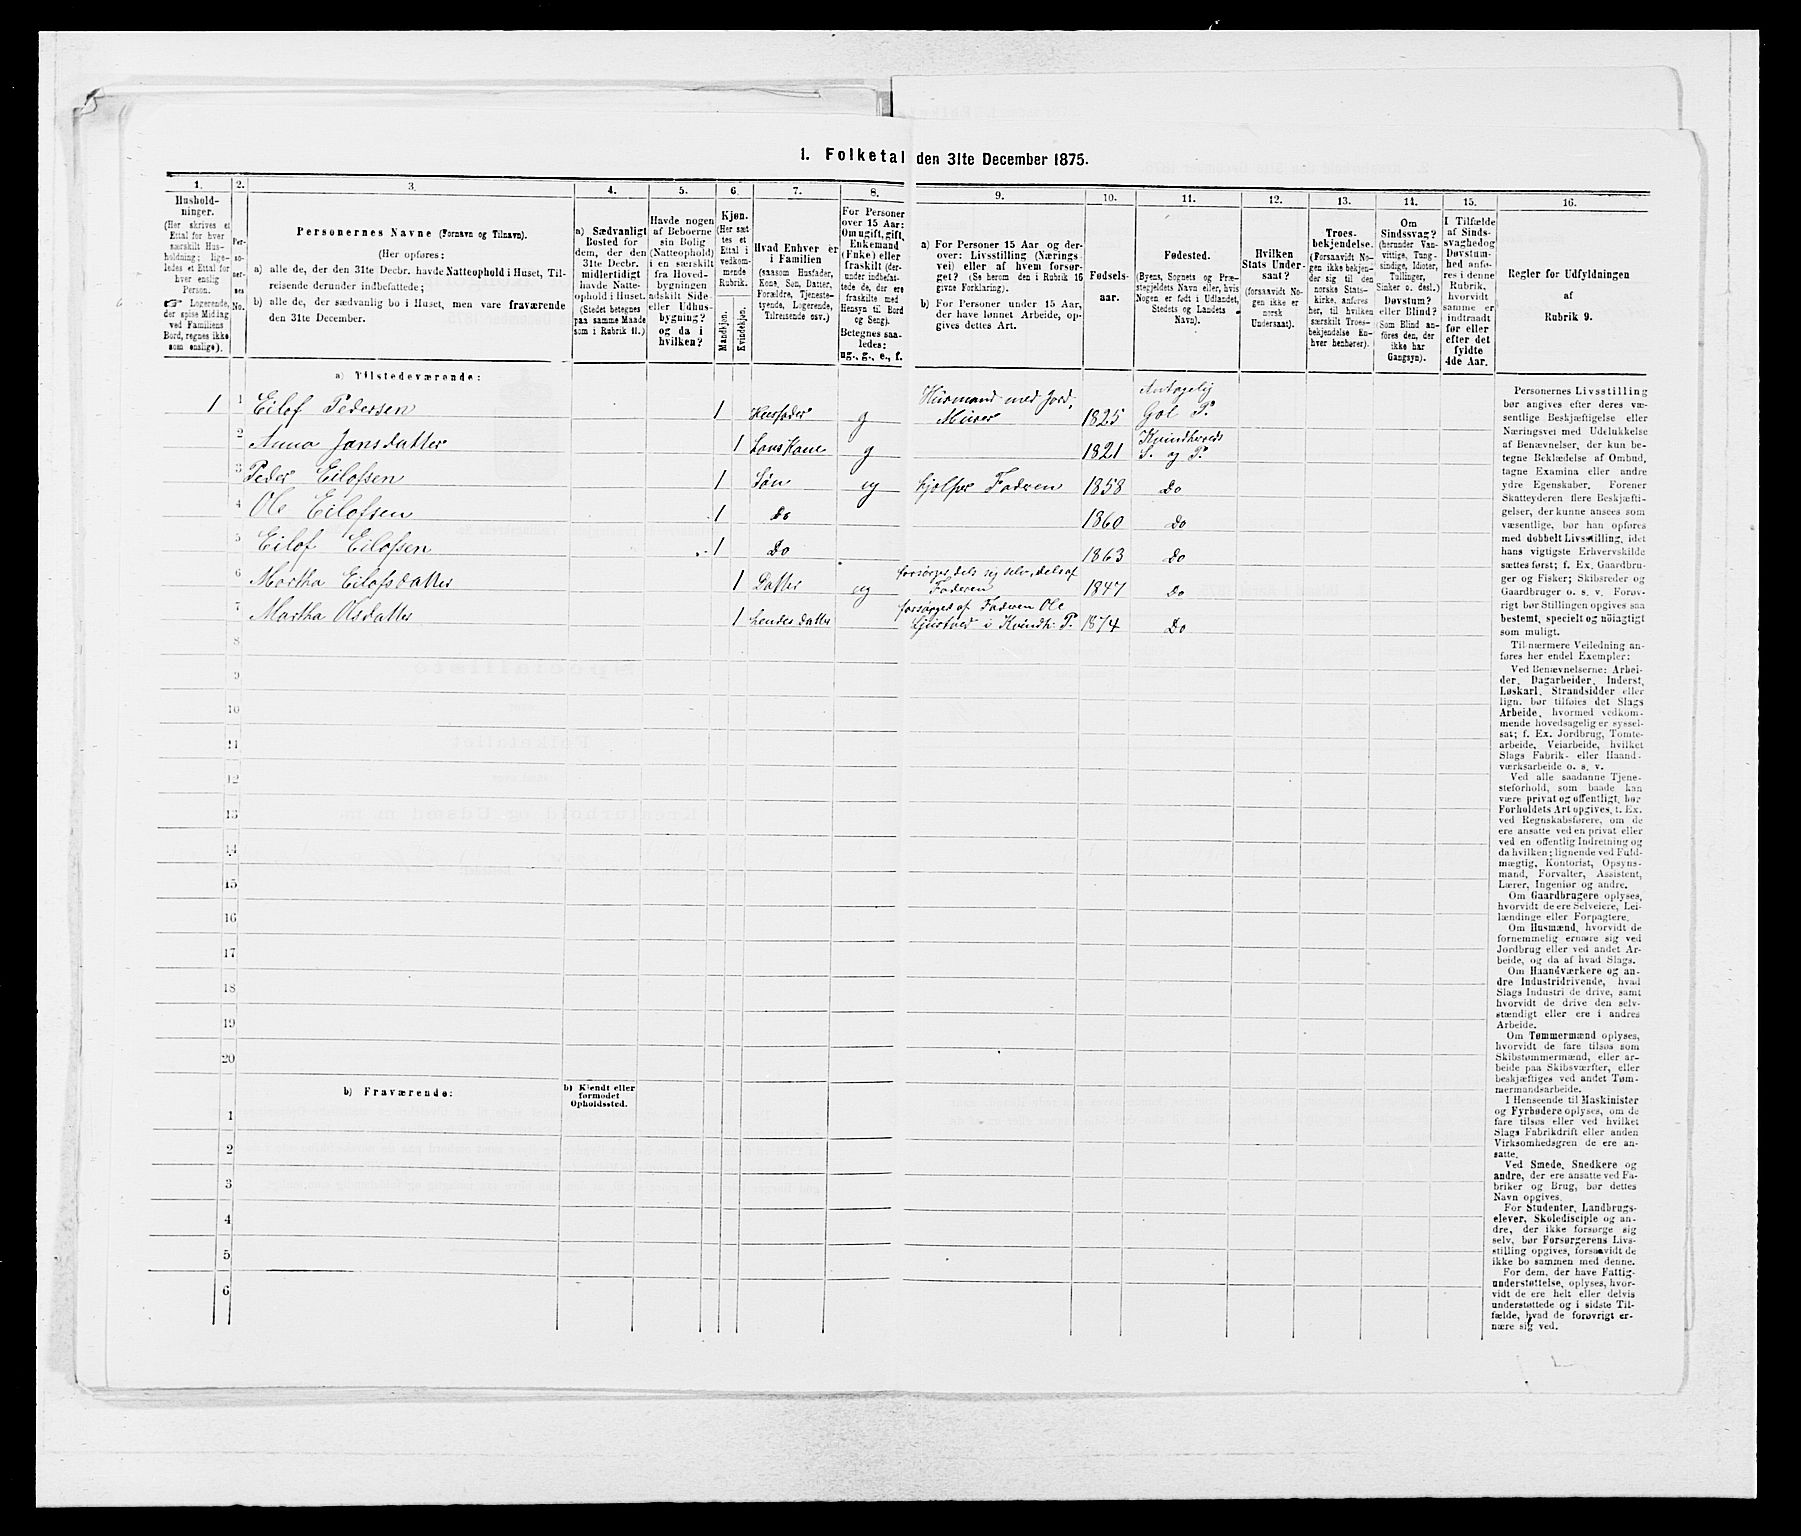 1. Folketal den 31te December 1875.
1.
2.
3.
4.
5.
6.
7.
8.
9.
10.
11.
12.
13.
14.
15.
16.
Hushold-
ninger.
(Her skrives et
Ettal for hver
særskilt Hus-
holdning; lige-
ledes et Ettal for
hver enslig
Person.
☞ Logerende,
der spise Middag
ved Familiens
Bord, regnes ikke
som enslige).
Per-
so-
ner-
nes
No.
Personernes Navne (Fornavn og Tilnavn).
(Her opføres:
a) alle de, der den 31te Decbr. havde Natteophold i Huset, Til-
reisende derunder indbefattede;
b) alle de, der sædvanlig bo i Huset, men vare fraværende
den 31te December.
a) Sædvanligt
Bosted for
dem, der den
31te Decbr.
midlertidigt
havde Natte-
ophold i Huset.
(Stedet betegnes
paa samme Maade
som i Rubrik 11.)
Havde nogen
af Beboerne
sin Bolig
(Natteophold)
i en særskilt
fra Hoved-
bygningen
adskilt Side-
eller Udhus-
bygning?
og da i
hvilken?
Kjøn.
(Her sæt-
tes et
Ettal i
vedkom-
mende
Rubrik.
Mandkjøn.
Kvindekjøn.
Hvad Enhver er
i Familien
(saasom Husfader,
Kone, Søn, Datter,
Forældre, Tjeneste-
tyende, Logerende,
Tilreisende osv.)
For Personer
over 15 Aar:
Om ugift, gift,
Enkemand
(Enke) eller
fraskilt (der-
under indbefat-
tede de, der ere
fraskilte med
Hensyn til Bord
og Seng).
Betegnes saa-
ledes:
ug., g., e., f.
a) For Personer 15 Aar og der-
over: Livsstilling (Nærings-
vei) eller af hvem forsør-
get? (Se herom den i Rubrik 16
givne Forklaring).
b) For Personer under 15 Aar,
der have lønnet Arbeide, op-
gives dettes Art.
Fødsels-
aar.
Fødested.
(Byens, Sognets og Præ-
stegjeldets Navn eller, hvis
Nogen er født i Udlandet,
Stedets og Landets
Navn).
Hvilken
Stats Under-
saat?
(forsaavidt No-
gen ikke er
norsk
Undersaat).
Troes-
bekjendelse.
(Forsaavidt No-
gen ikke bekjen-
der sig til den
norske Stats-
kirke, anføres
her, til hvilken
særskilt Troes-
bekjendelse En-
hver henhører).
Om
Sindssvag?
(herunder Van-
vittige, Tung-
sindige, Idioter,
Tullinger,
Sinker o. desl.)
Døvstum?
eller Blind?
(Som Blind an-
føres den, der
ikke har
Gangsyn).
I Tilfælde
af Sinds-
svaghed og
Døvstum-
hed anfø-
res i denne
Rubrik,
hvorvidt
samme er
indtraadt
før eller
efter det
fyldte
4de Aar.
Regler for Udfyldningen
af
Rubrik 9.
a) Tilstedeværende:
1 1 Eilof Pedersen 1 Husfader g Huusmand med Jord, Murer 1825 Antagelig Gol P.
2 Anna Jansdatter 1 hans Kone g 1821 Kvindherreds S. og P.
3 Peder Eilofsen 1 Søn ug hjelper Faderen 1858 Do
4 Ole Eilofsen 1 Do 1860 Do
5 Eilof Eilofsen 1 Do 1863 Do
6 Martha Eilofsdatter 1 Datter ug forsørges dels sig selv, dels af Faderen 1847 Do
7 Martha Olsdatter 1 hendes datter forsørged af Faderen Ole i Kvindh. P. 1874 Do
8
9
10
11
12
13
14
15
16
17
18
19
20
b) Fraværende:
b) Kjendt eller
formodet
Opholdssted.
1
2
3
4
5
6
Personernes Livsstilling
bør angives efter deres væ-
sentlige Beskjæftigelse eller
Næringsvei med Udelukkelse
af Benævnelser, der kun be-
tegne Beklædelse af Ombud,
tagne Examina eller andre
ydre Egenskaber. Forener
Skatteyderen flere Beskjæfti-
gelser, der kunne ansees som
væsentlige, bør han opføres
med dobbelt Livsstilling, idet
hans vigtigste Erhvervskilde
sættes først; f. Ex. Gaardbru-
ger og Fisker; Skibsreder og
Gaardbruger o. s. v. Forøv-
rigt bør Stillingen opgives saa
bestemt, specielt og nöiagtigt
som muligt.
Til nærmere Veiledning an-
føres her endel Exempler:
Ved Benævnelserne: Arbei-
der, Dagarbeider, Inderst,
Løskarl, Strandsidder eller
lign. bør tilføies det Slags
Arbeide, hvormed vedkom-
mende hovedsagelig er syssel-
sat; f. Ex. Jordbrug, Tomte-
arbeide, Veiarbeide, hvilket
Slags Fabrik- eller Haand-
værksarbeide o. s. v.
Ved alle saadanne Tjene-
steforhold, som baade kan
være privat og offentligt, bør
Forholdets Art opgives, t. Ex.
ved Regnskabsførere, om de
ere ansatte ved en privat eller
ved en offentlig Indretning og
da hvilken; lignende ved Fuld-
mægtig, Kontorist, Opsyns-
mand, Forvalter, Assistent,
Lærer, Ingeniør og andre.
Om Gaardbrugere oplyses,
hvorvidt de ere Selveiere, Lei-
lændinge eller Forpagtere.
Om Husmænd, hvorvidt de
fornemmelig ernære sig ved
Jordbrug eller ved andet Ar-
beide, og da af hvad Slags.
Om Haandværkere og an-
dre Industridrivende, hvad
Slags Industri de drive, samt
hvorvidt de drive den selv-
stændigt eller ere i andres
Arbeide.
Om Tømmermænd oplyses,
hvorvidt de fare tilsøs som
Skibstømmermænd, eller ar-
beide paa Skibsværfter, eller
beskjæftiges ved andet Tøm-
mermandsarbeide.
I Henseende til Maskinister
og Fyrbødere oplyses, om de
fare tilsøs eller ved hvilket
Slags Fabrikdrift eller anden
Virksomhedsgren de ere an-
satte.
Ved Smede, Snedkere og
andre, der ere ansatte ved Fa-
briker og Brug, bør dettes
Navn opgives.
For Studenter, Landbrugs-
elever, Skoledisciple og an-
dre, der ikke forsørge sig
selv, bør Forsørgerens Livs-
stilling opgives, forsaavidt de
ikke bo sammen med denne.
For dem, der have Fattig-
understøttelse, oplyses, hvor-
vidt de ere helt eller delvis
understøttede og i sidste Til-
fælde, hvad de forøvrigt er-
nære sig ved.